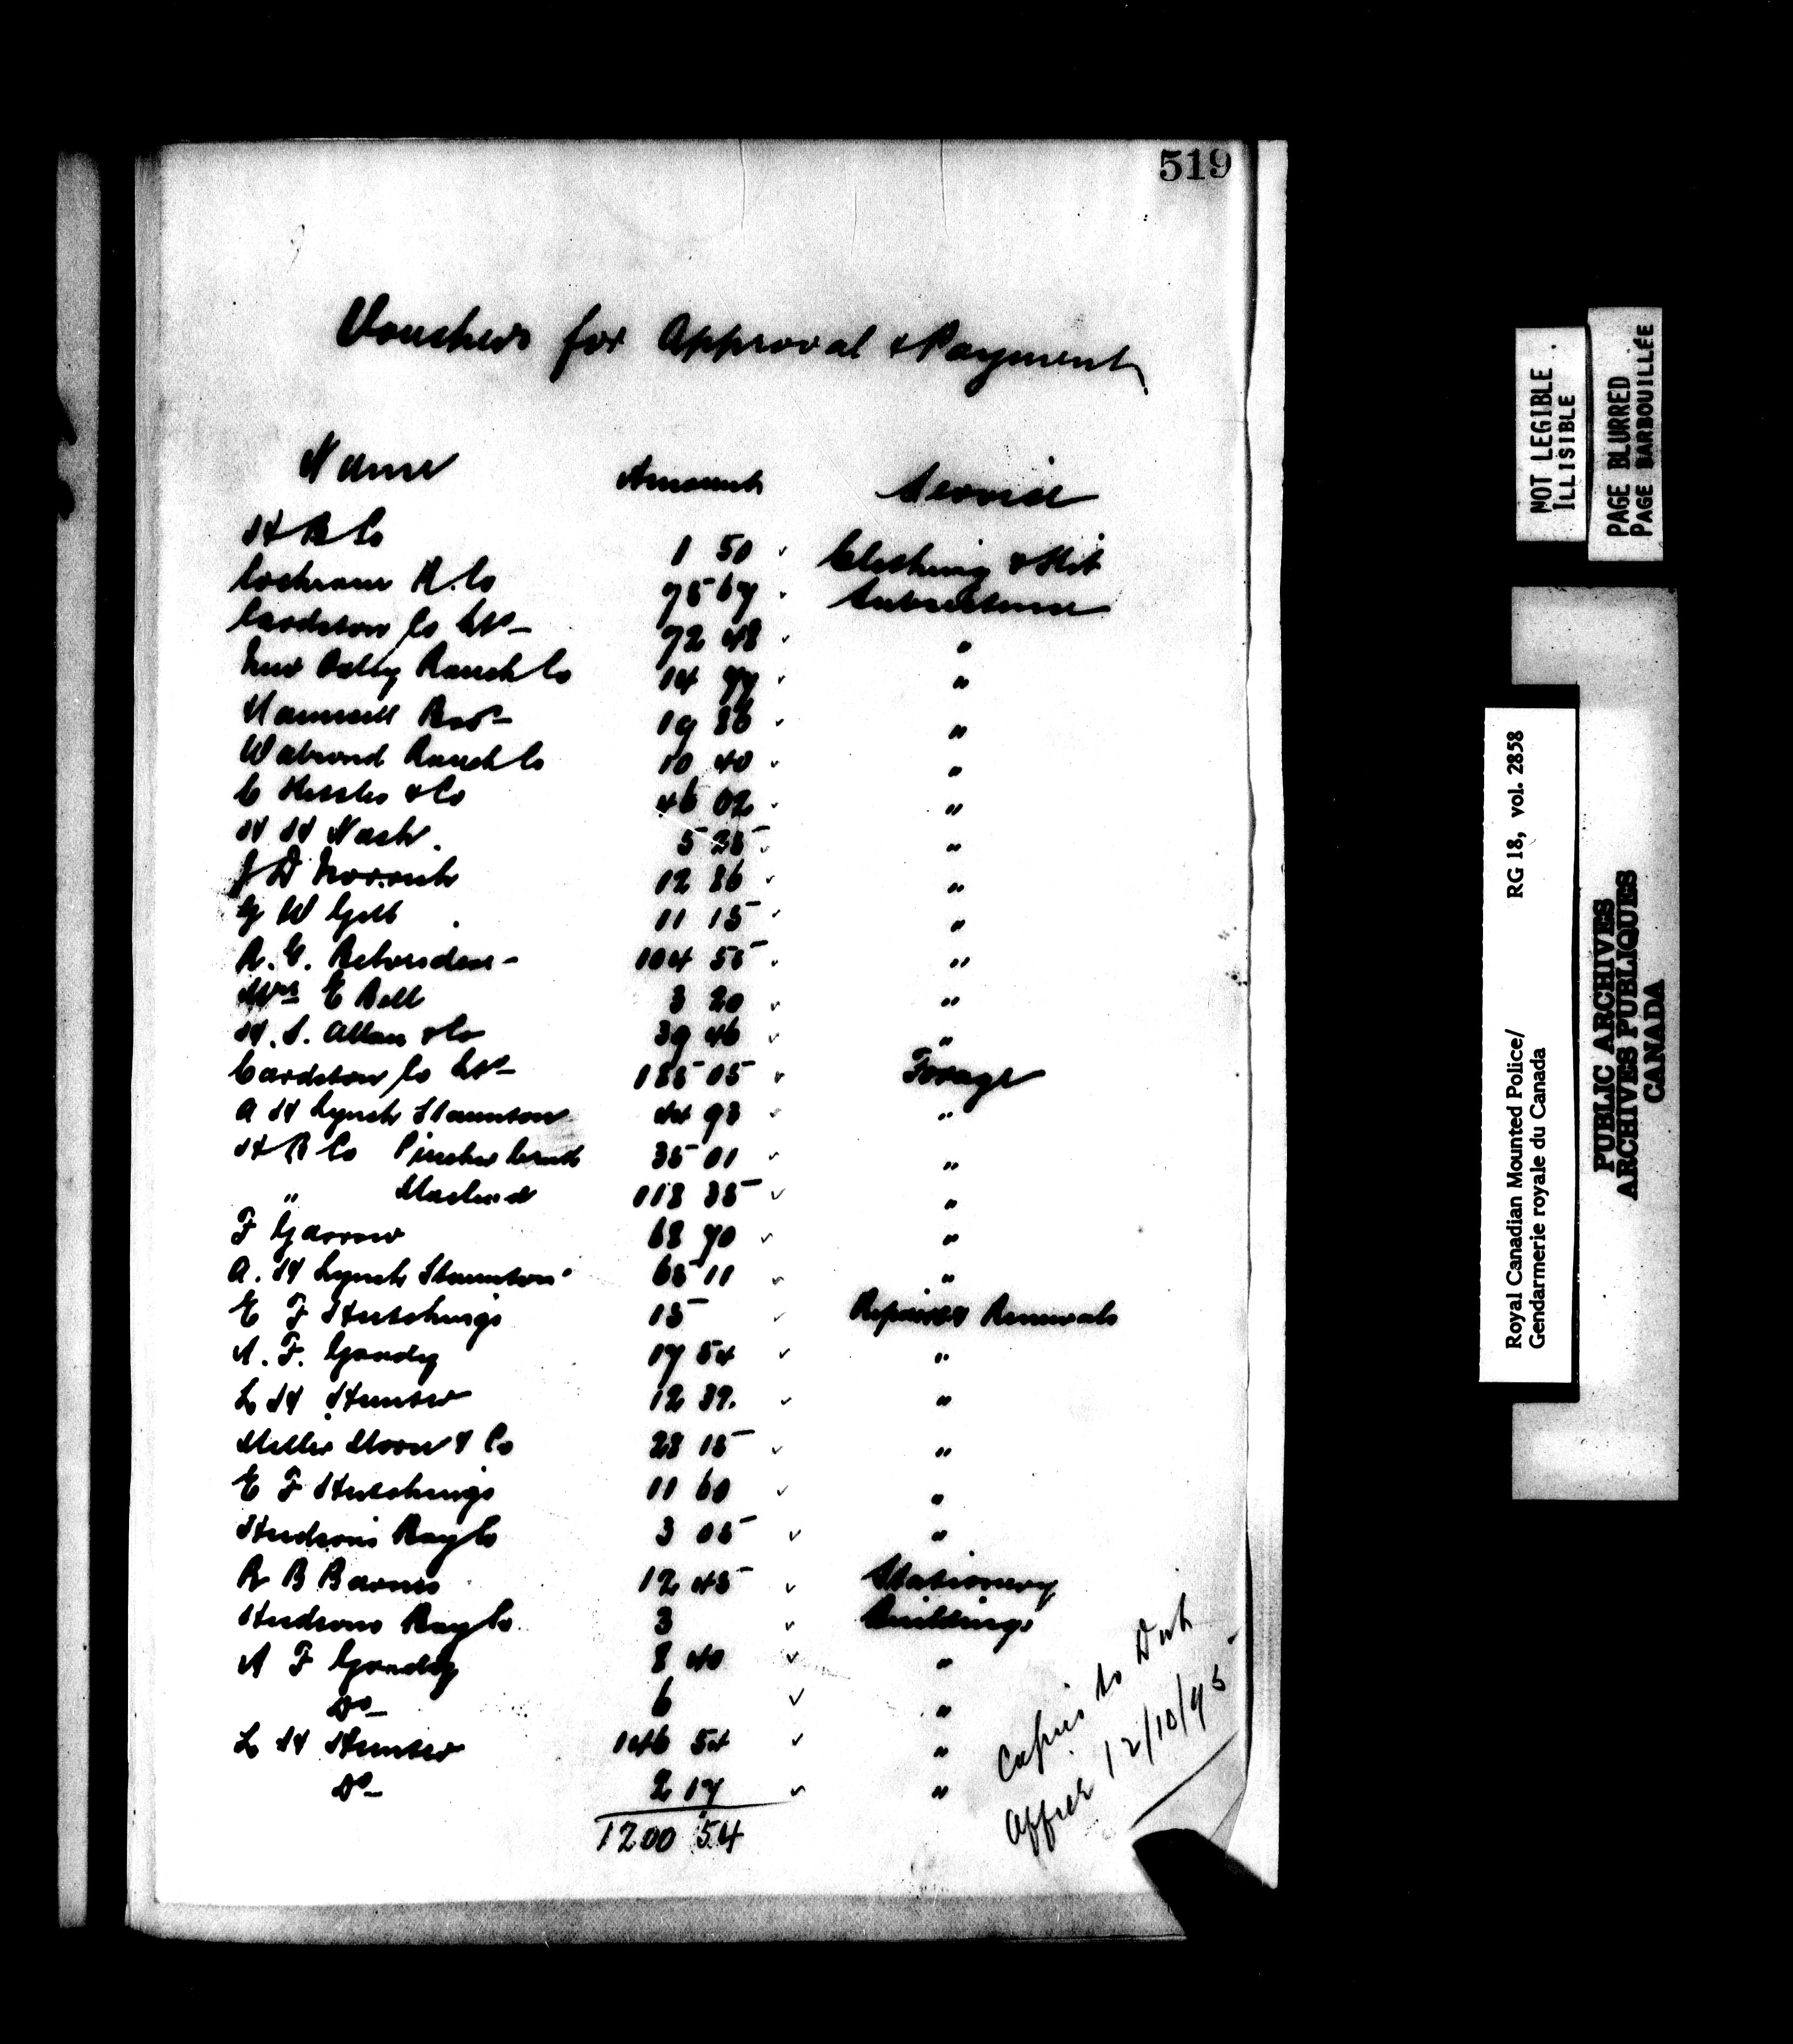 519
Vouchers for Approval & Payment
Name Amount Service
H B Co 1 50 ✓ Clothing & Kit
Cochrane R. Co 75 67 ✓ Subsistence
Cardston Co Ltd 72 48 ✓ "
New Oxley Ranch Co 14 77 ✓ "
Maunsell Bros 19 86 ✓ "
Walrond Ranch Co 10 40 ✓ "
C Kettles & Co 46 02 ✓ "
H H Nash. 5 25 ✓ "
J D 12 86 ✓ "
G W Gell 11 15 ✓ "
R. G. 104 55 ✓ "
Mrs E Bell 3 20 ✓ "
H. S. Allan & Co 39 46 ✓ "
Cardston Co Ltd 185 05 ✓ Forage
A H Lynch Staunton 44 93 ✓ "
H B Co Pincher Creek 35 01 ✓ "
" Macleod 118 35 ✓ "
F Garrow 68 70 ✓ "
A. H Lynch Staunton 65 11 ✓ "
E F Hutchings 15 ✓ Repairs & Renewals
A. F. Grady 17 54 ✓ "
L H Hunter 12 39. ✓ "
Miller Moore & Co 28 15 ✓ "
E F Hutchings 11 60 ✓ "
Hudsons Bay Co 3 05 ✓ "
R B Barnes 12 45 ✓ Stationery
Hudsons Bay Co. 3 ✓ Buildings
A F Grady 8 40 ✓ "
Do 6 ✓ "
L H Hunter 146 54 ✓ "
Do 2 17 ✓ "
1200 54
Copies to
Officer 12/10/95
NOT LEGIBLE
ILLISIBLE
PAGE BLURRED
PAGE BARBOUILLÉE
RG 18, vol. 2858
Royal Canadian Mounted Police/
Gendarmerie royale du Canada
PUBLIC ARCHIVES
ARCHIVES PUBLIQUES
CANADA